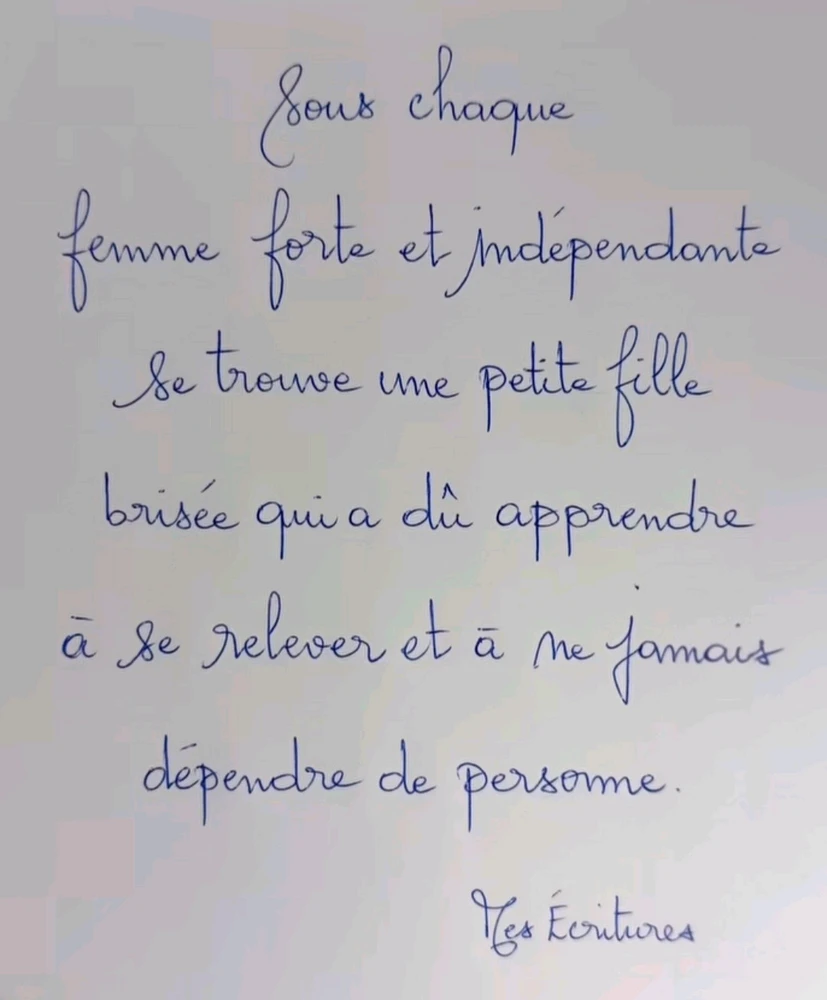 Sous chaque
femme forte et indépendante
se trouve une petite fille
brisée qui a dû apprendre
à se relever et à ne jamais
dépendre de personne.
Mes Écritures